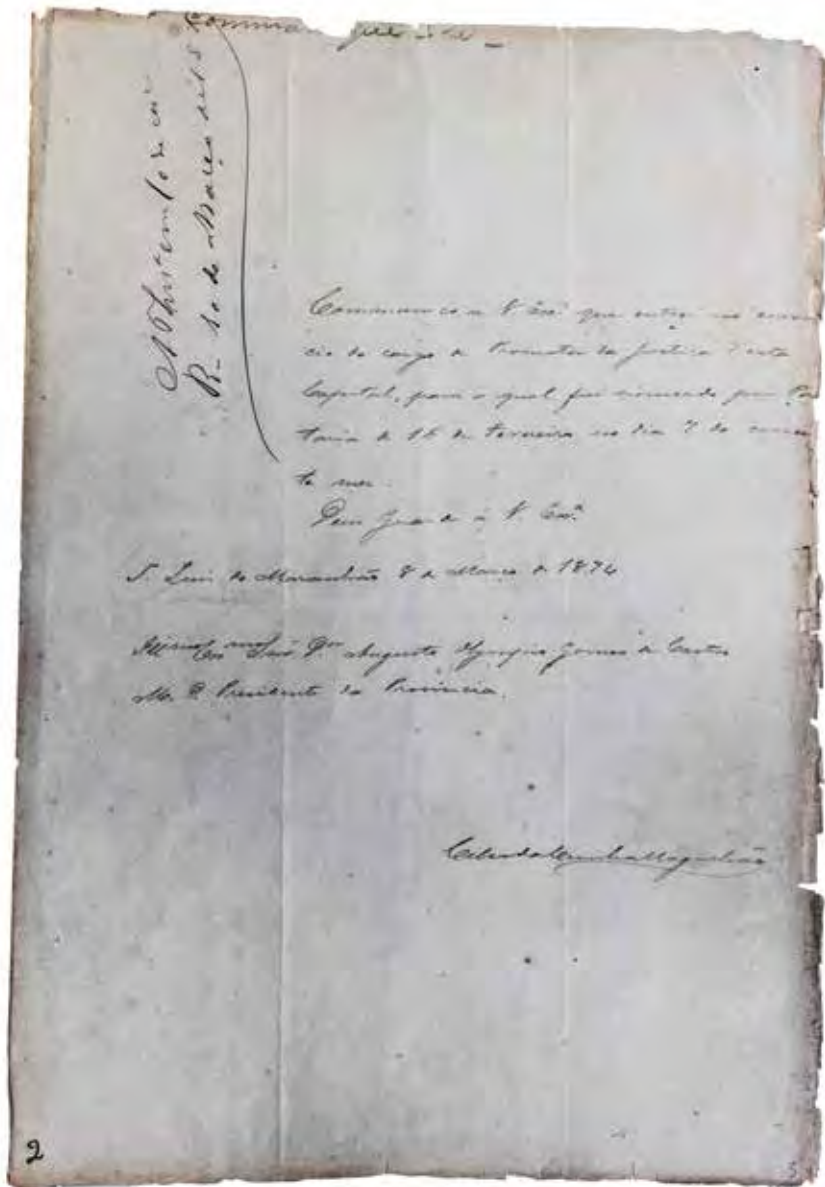 Communico a V. Exª que entrei no exerci
cio do cargo de Promotor da Justiça d'esta
Capital, para o qual fui nomeado por Por
taria de 16 de Fevereiro no dia 7 do corren
te mez.
Deus Guarde a V. Exª
S. Luis do Maranhão 8 de Março de 1874
Illmo Exmo Snr. Dr. Augusto Olympio Gomes de Castro
M. D. Presidente da Provincia.
Celso da Cunha Magalhães
2